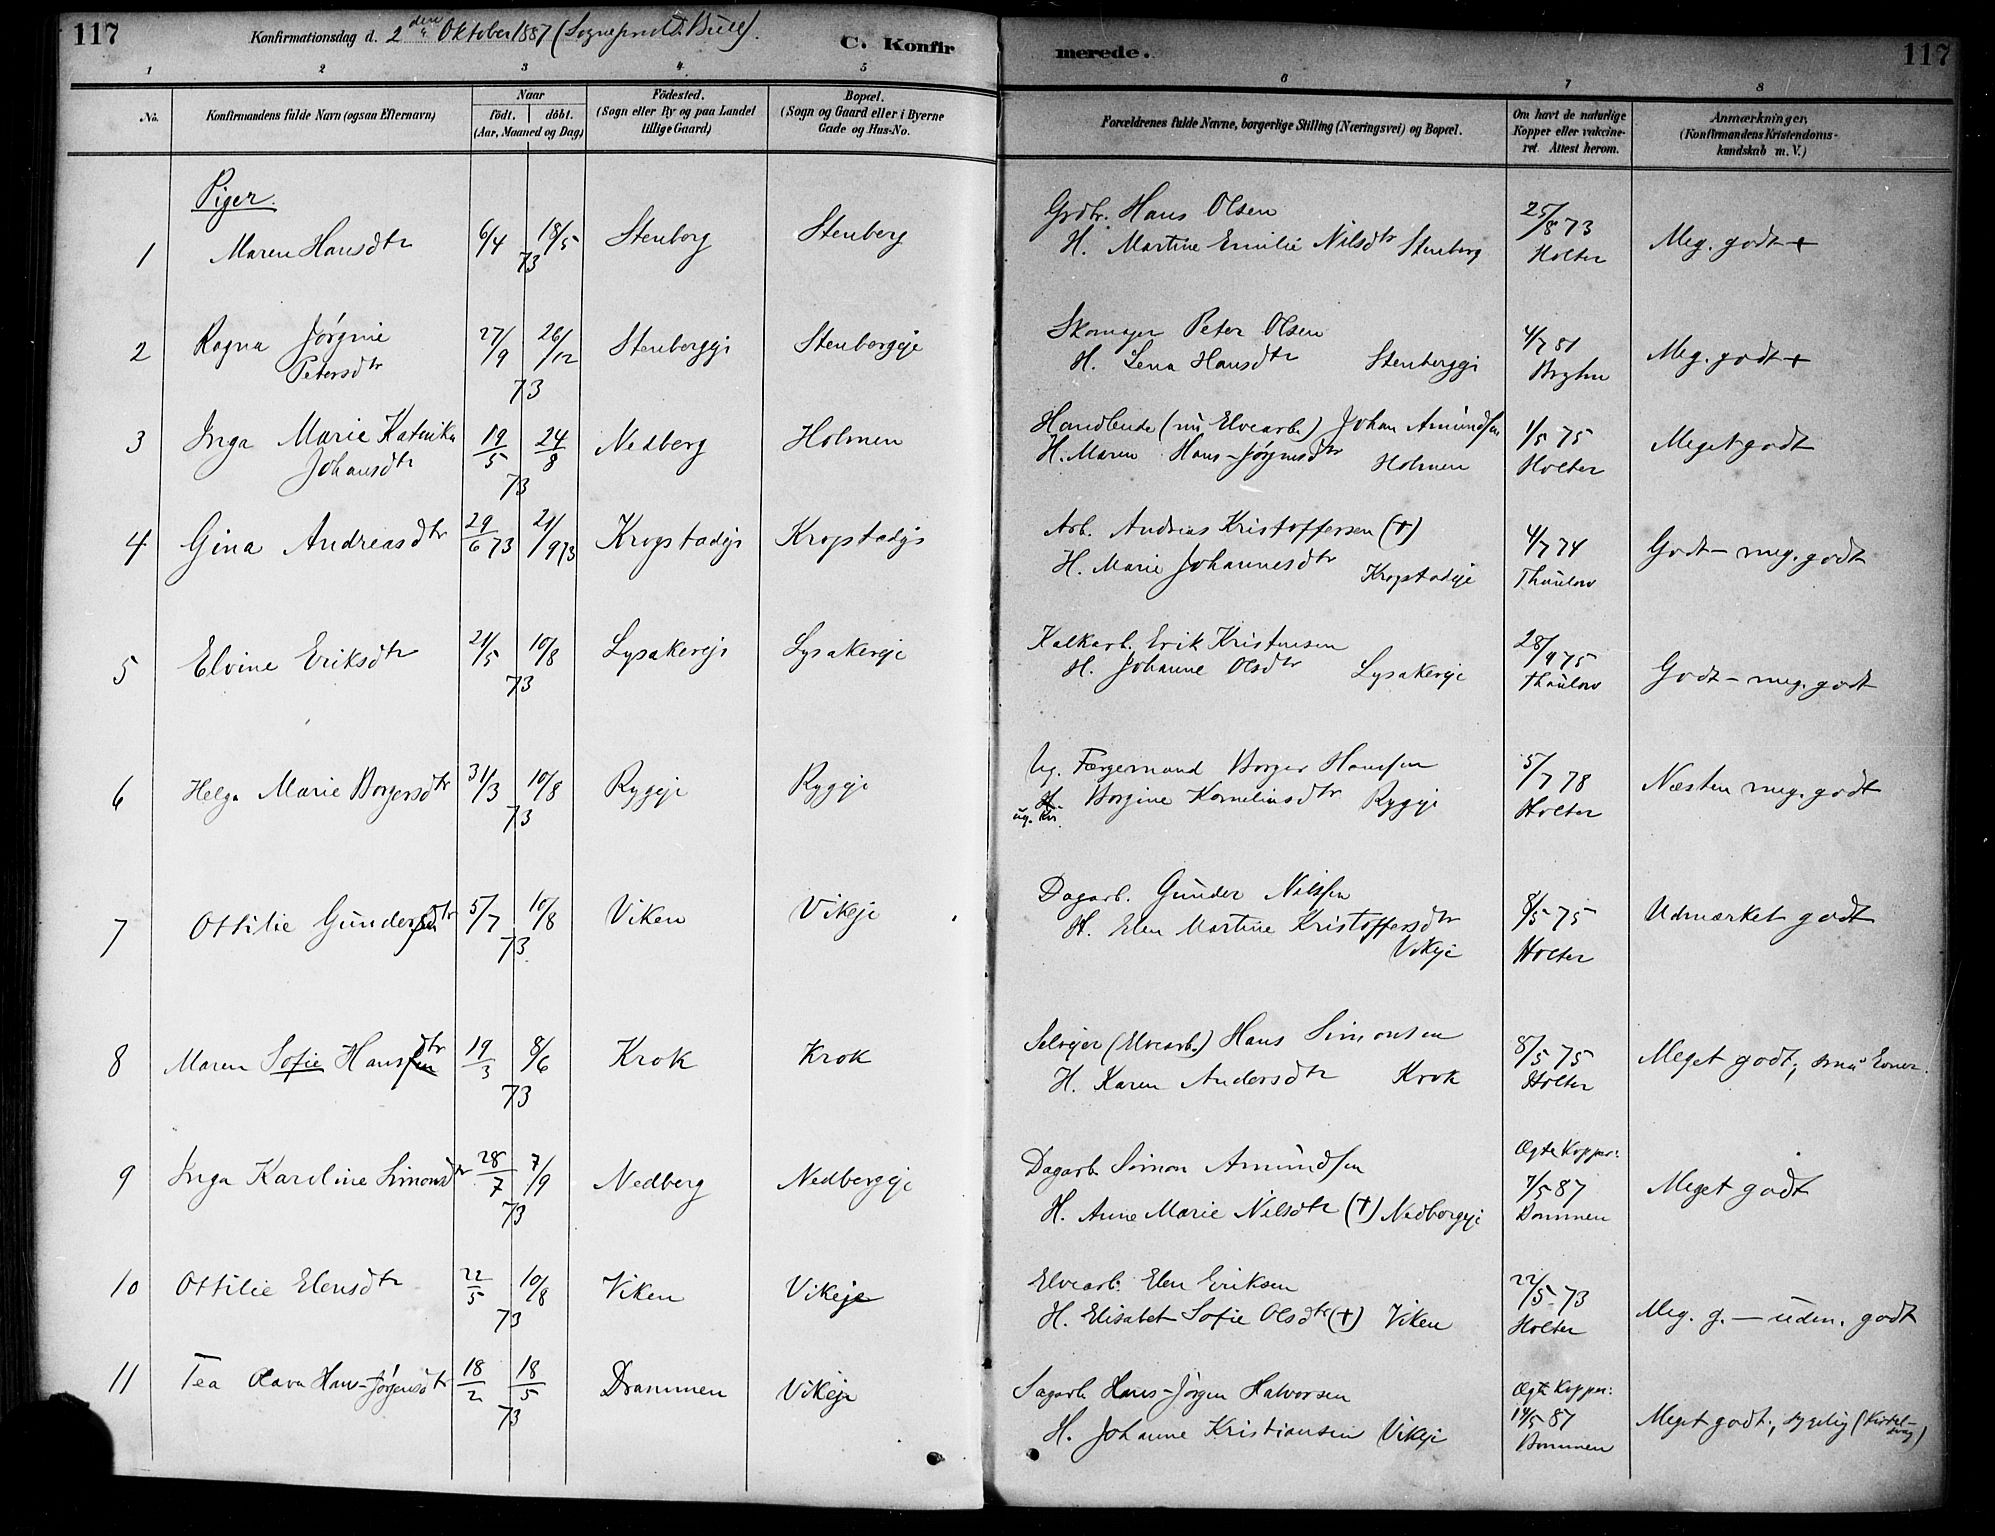 117
Konfirmationsdag d. 2den Oktober 1887 (Sogneprest Bull).
C. Konfir
merede.
117
1 2 3 4 5 6 7 8
No.
Konfirmandens fulde Navn (ogsaa Efternavn)
Naar
födt. döbt.
(Aar, Maaned og Dag)
Födested.
(Sogn eller By og paa Landet
tillige Gaard)
Bopæl.
(Sogn og Gaard eller i Byerne
Gade og Hus-No.
Forældrenes fulde Navne, borgerlige Stilling (Næringsvei) og Bopæl.
Om havt de naturlige
Kopper eller vakcine-
ret. Attest herom.
Anmærkninger,
(Konfirmandens Kristendoms-
kundskab m. V.)
Piger.
1 Maren Hansdtr 6/4 18/5 73 Stenberg Stenberg
Grdbr. Hans Olsen
H. Martine Emilie Nilsdtr Stenberg
25/8 73
Holter
Meg. godt +
2 Ragna Jörgine
Petersdtr
27/9 26/12 73 Stenbergeje Stenbergeje
Skomager Peter Olsen
H. Lena Hansdtr Stenbergeje
4/7 81
Meg. godt +
3 Inga Marie Katrika
Johansdtr
19/5 24/8 73 Nedberg Holmen
Handlende (nu Elvearb.) Johan Amundsen
H. Maren Hans-Jörgensdtr Holmen
1/5 75
Holter
Meget godt
4 Gina Andreasdtr 29/6 73 21/9 73 Krogstadejs Krogstadejs
Arb. Andreas Kristoffersen (†)
H. Marie Johannesdtr Krogstadeje
4/7 74
Thaulow
Godt - meg. godt
5 Elvine Eriksdtr 21/5 10/8 73 Lysakereje Lysakereje
Kalkarb. Erik Kristensen
H. Johanne Olsdtr Lysakereje
28/9 75
Thaulow
Godt - meg. godt
6 Helga Marie Borgersdtr 31/3 10/8 73 Ryggeje Ryggeje
Ug. Færgemand Borger Hansen
H. Borgine Korneliusdtr Ryggeje
ug. Kv.
5/7 78
Holter
Næsten meg. godt
7 Ottilie Gundersdtr 5/7 10/8 73 Viken Vikeje
Dagarb. Gunder Nilsen
H. Elen Martine Kristoffersdtr
Vikeje
8/5 75
Holter
Udmærket godt
8 Maren Sofie Hansdtr 19/3 8/6 73 Krok Krok
Selvejer (Elvearb.) Hans Simonsen
H. Karen Andersdtr Krok
8/5 75
Holter
Meget godt; små Evner.
9 Inga Karoline Simonsdtr 28/7 7/9 73 Nedberg Nedbergeje
Dagarb. Simon Amundsen
H. Anne Marie Nilsdtr (†) Nedbergeje
Ægte Kopper:
7/5 87
Bommen
Meget godt
10 Ottilie Elensdtr 22/5 10/8 73 Viken Vikeje
Elvearb. Elen Eriksen
H. Elisabet Sofie Olsdtr (†) Viken
22/5 73
Holter
Meg. g. - udm. godt
11 Tea Olava Hans-Jörgensdtr 18/2 18/5 73 Drammen Vikeje
Sagarb. Hans-Jörgen Halvorsen
H. Johanne Kristiansen Vikeje
Ægte Kopper:
14/5 87
Bommen
Meget godt; sygelig (Kirtel-
svag)